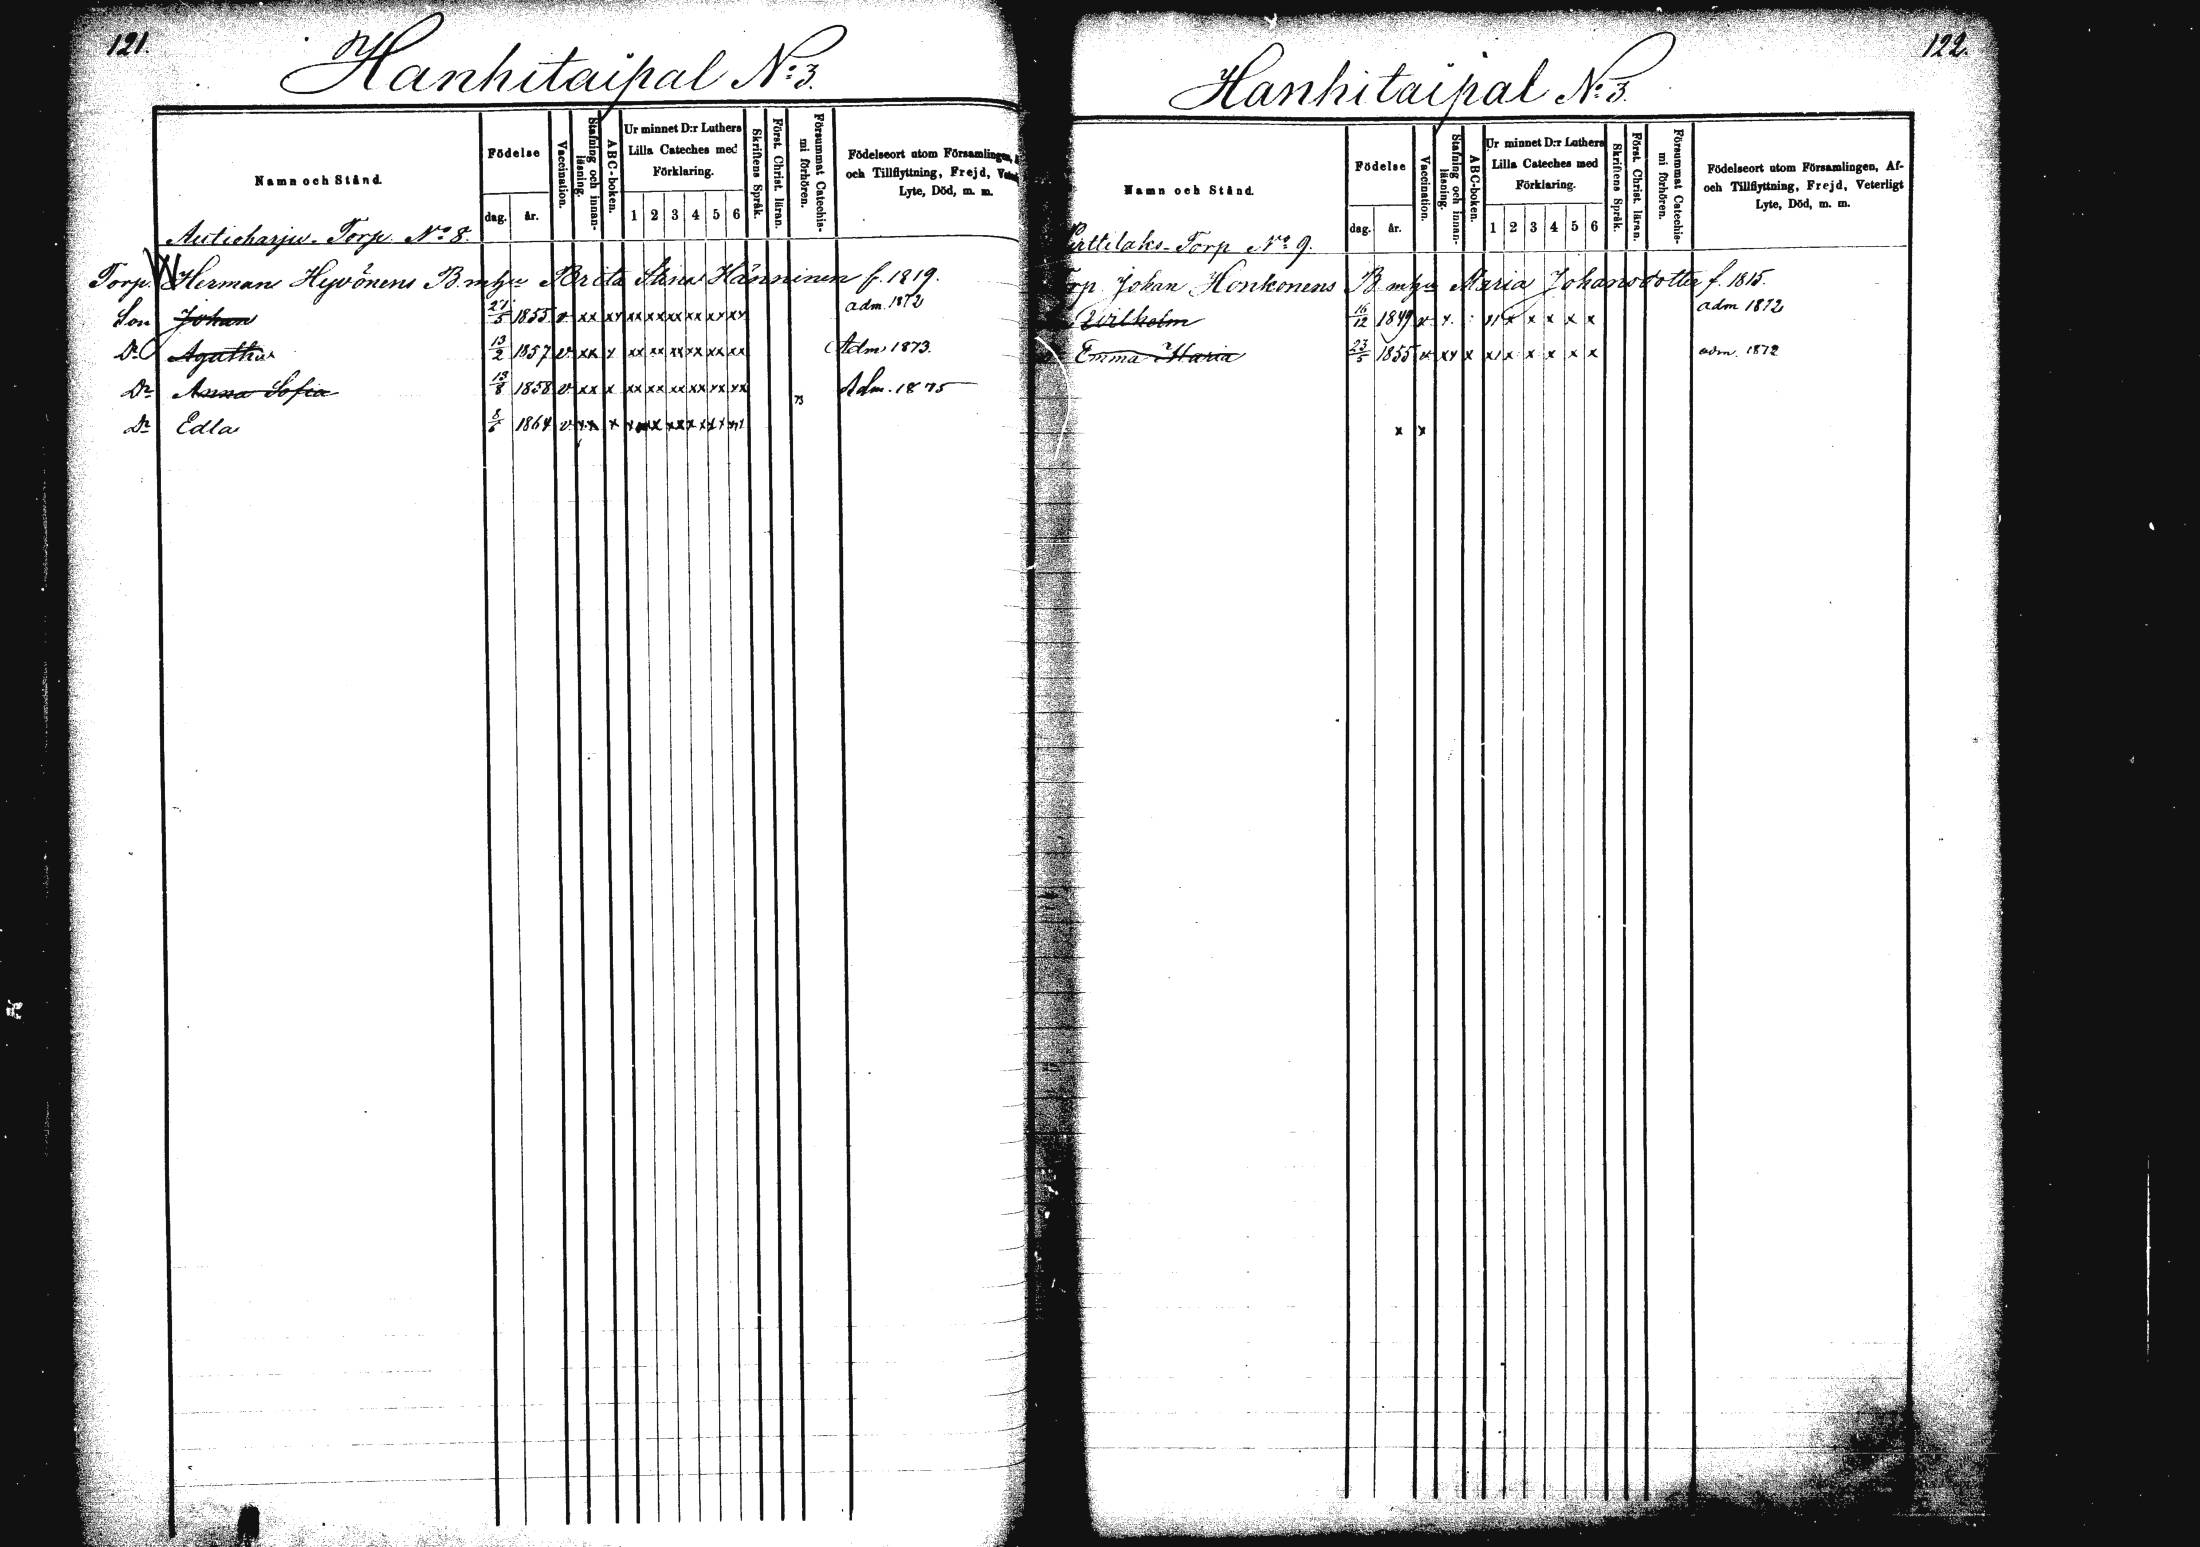 121.
Hanhitaipal N:o 3.
Namn och Stånd.
Födelse
dag. år.
Vaccination.
Stafning och innan-
läsning.
ABC-boken.
Ur minnet D:r Luthers
Lilla Cateches med
Förklaring.
1 2 3 4 5 6
Skriftens Språk.
Först. Christ. läran.
Försummat Catechis-
mi förhören.
Födelseort utom Församlingen,
och Tillflyttning, Frejd,
Lyte, Död, m. m.
Autioharju Torp. N:o 8.
Torp. Herman Hyvönens B. m hu Brita Stina Hänninen f. 1819.
Son Johan 27/5 1855 v xx xx xx xx xx xx xx xx adm. 1872
Dr Agatha 13/2 1857 v xx x xx xx xx xx xx xx Adm 1873.
Dr Anna Sofia 13/8 1858 v xx x xx xx xx xx xx xx 73 Adm. 1875
Dr Edla 8/6 1864 v xx x
122.
Hanhitaipal N:o 3.
Namn och Stånd.
Födelse
dag. år.
Vaccination.
Stafning och innan-
läsning.
ABC-boken.
Ur minnet D:r Luthers
Lilla Cateches med
Förklaring.
1 2 3 4 5 6
Skriftens Språk.
Först. Christ. läran.
Försummat Catechis-
mi förhören.
Födelseort utom Församlingen, Af-
och Tillflyttning, Frejd, Veterligt
Lyte, Död, m. m.
Torp N:o 9.
Johan Honkonens B m hu Maria Johansdotter f. 1815.
Wilhelm 16/12 1849 v x x x x x x adm 1872
Emma Maria 23/5 1855 v xx x xx x x x x x adm. 1872
x x